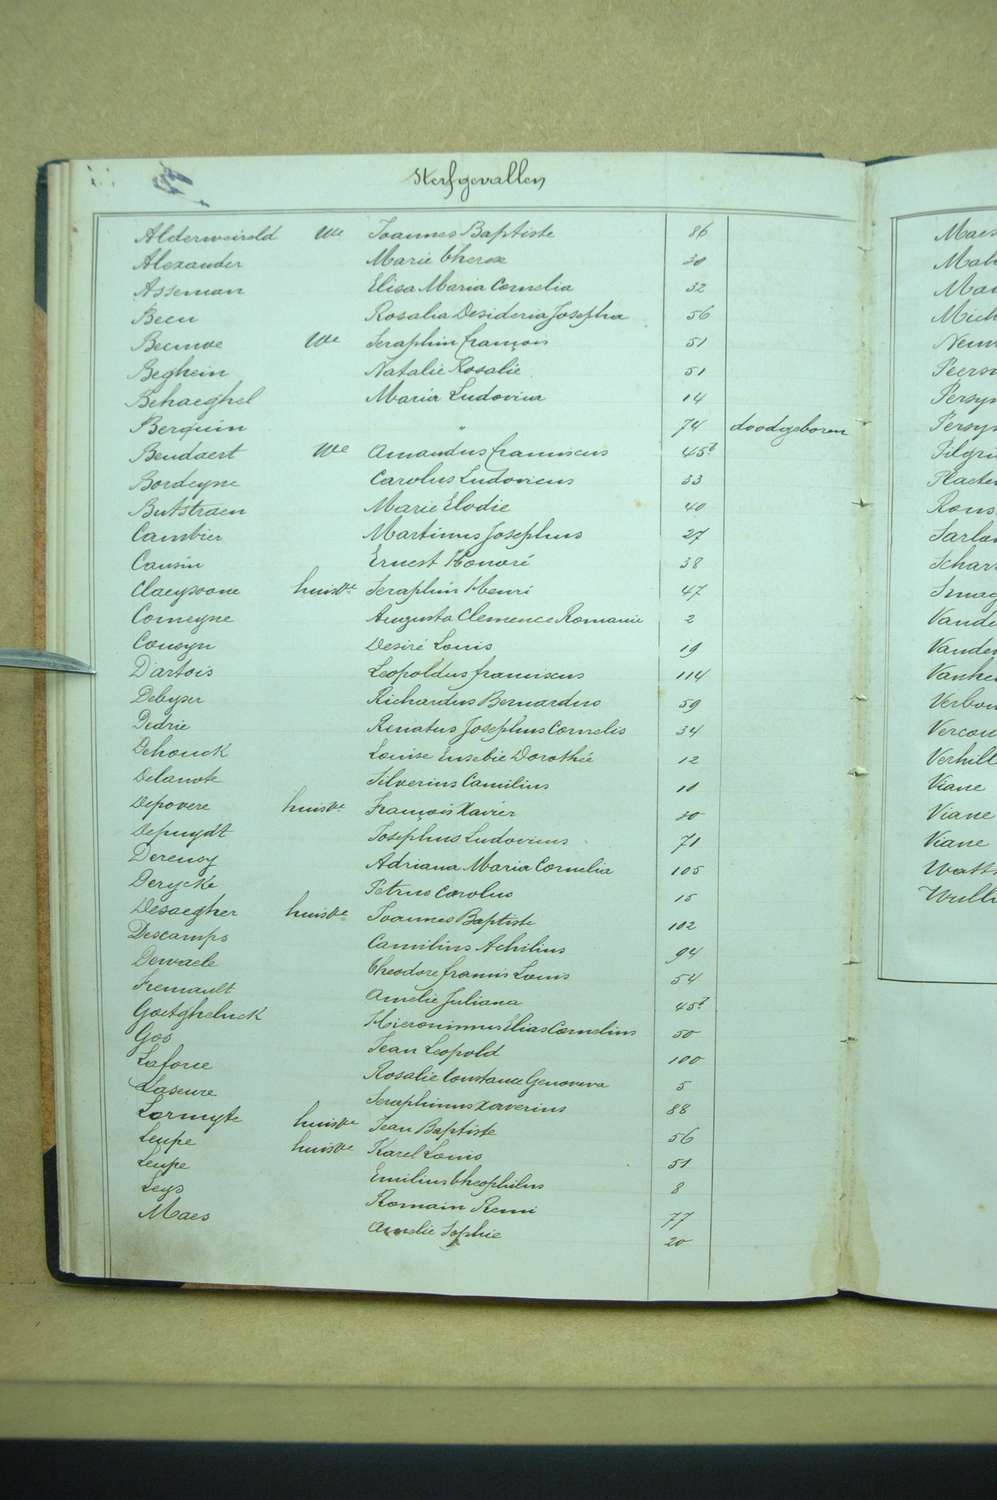 Sterfgevallen
Alderweireld We Joannes Baptiste 86
Alexander Marie Therese 30
Asseman Elisa Maria Cornelia 32
Becu Rosalia Desideria Josepha 56
Becuwe We Seraphin François 51
Beghein Natalie Rosalie 51
Behaeghel Maria Ludovica 14
Berquin " 74 doodgeboren
Beudaert We Amandus Franciscus 45²
Bordeyne Carolus Ludovicus 33
Butstraen Marie Elodie 40
Cambier Martinus Josephus 27
Causin Ernest Honoré 38
Claeysoone huisvr Seraphin Henri 47
Comeyne Augusta Clemence Romanie 2
Cousyn Desiré Louis 19
D'artois Leopoldus Franciscus 114
Debyser Richardus Bernardus 59
Dedrie Renatus Josephus Cornelis 34
Dehouck Louise Eusebie Dorothée 12
Delanote Silverius Camilius 11
Depovere huisvr François Xavier 30
Depuydt Josephus Ludovicus 71
Dereuoy Adriana Maria Cornelia 105
Derycke Petrus Carolus 15
Desaegher huisvr Joannes Baptiste 102
Descamps Camilius Achilius 94
Dewaele Theodore Francis Louis 54
Fremault Amelie Juliana 45²
Goetgheluck Hieronimus Elias Cornelius 50
Gos Jean Leopold 100
Laforce Rosalie Constance Genoveva 5
Laseure Seraphinus Xaverius 88
Lermyte huisvr Jean Baptiste 56
Leupe huisvr Karel Louis 51
Leupe Emilius Theophilus 8
Leys Romain Remi 77
Maes Amelie Sophie 20
Maes
Viane
Viane
Viane